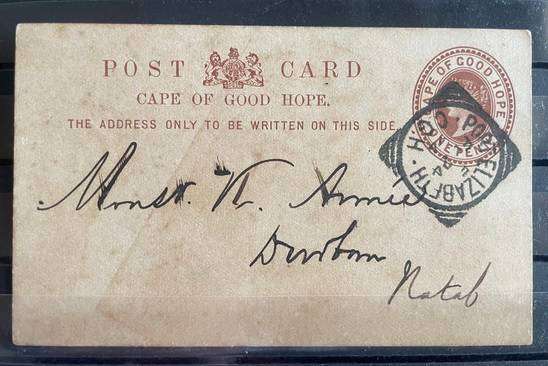 POST CARD
CAPE OF GOOD HOPE.
THE ADDRESS ONLY TO BE WRITTEN ON THIS SIDE
CAPE OF GOOD HOPE
ONE PENNY
PORT ELIZABETH
Durban
Natal